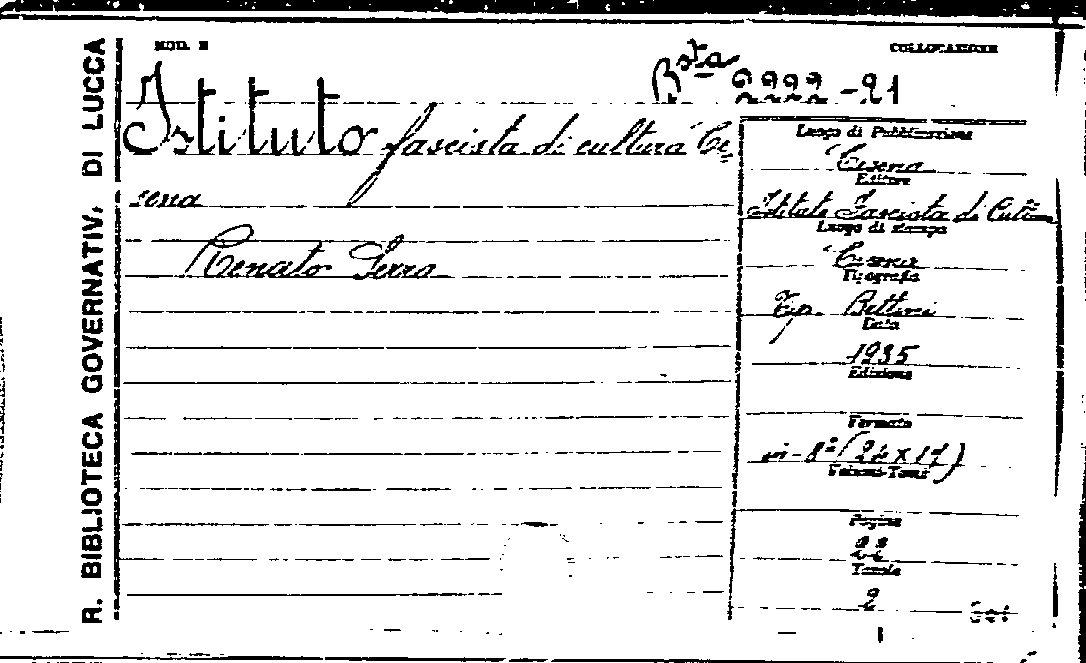 R. BIBLIOTECA GOVERNATIV. DI LUCCA
MOD. B
COLLOCAZIONE
Bsta 2222-21
Istituto fascista di cultura Ce=
sena
Renato Serra
Luogo di Pubblicazione
Cesena
Editore
Istituto Fascista di Cultura
Luogo di stampa
Cesena
Tipografia
Tip. Bettini
Data
1935
Edizione
Formato
in-8° (24x17)
Volumi-Tomi
Pagine
22
Tavole
2